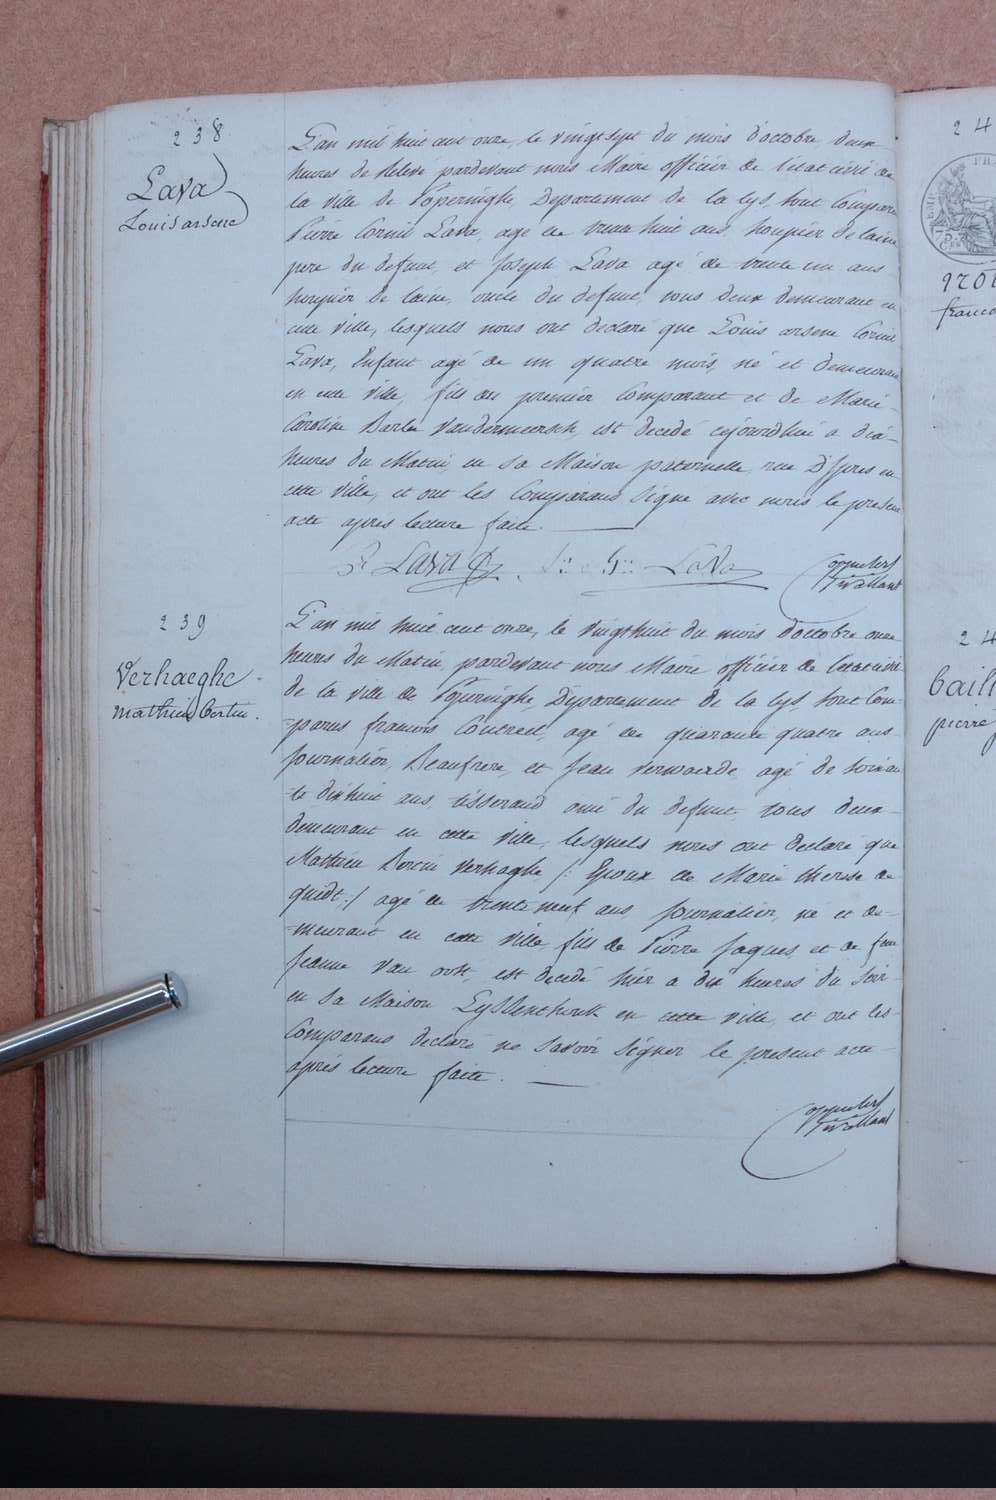 238
Lava
Louis arsene
L'an mil huit cent onze, le vingt sept du mois d'octobre, deux
heures de Relevé pardevant nous Maire officier de l'état civil de
la ville de Poperinghe, Departement de la Lys, sont Compar
Pierre Cornil Lava, agé de trente huit ans, houpier de laine
pere du defunt, et Joseph Lava agé de trente un ans
houpier de laine, oncle du defunt, tous deux demeurant en
cette ville, lesquels nous ont declaré que Louis arsene Cornil
Lava, Enfant agé de un quatre mois, né et demeurant
en cette ville, fils du premier Comparant et de Marie
Caroline Barbe Vandermeersch, est decedé cejourd'hui a dix
heures du Matin, en sa Maison paternelle rue D'Ipres en
cette ville, et ont les Comparans Signé avec nous le present
acte après lecture faite.
P. LAVA
LaVa
239
Verhaeghe
Mathieu Bertin.
L'an mil huit cent onze, le vingt huit du mois d'octobre onze
heures du Matin, pardevant nous Maire officier de l'etat civil
de la ville de Poperinghe, Departement de la Lys, sont Com-
-parus francois Couttreel, agé de quarante quatre ans
Journalier, Beaufrere, et Jean Verwaerde agé de soixan
-te dixhuit ans, tisserand ami du defunt, tous deux
demeurant en cette ville, lesquels nous ont declaré que
Mathieu Bertin Verhaghe /: Epoux de Marie therese de
quidt :/ agé de trente neuf ans journalier, né et de-
-meurant en cette ville, fils de Pierre Jaques et de feue
Jeanne Van , est decedé hier a dix heures du Soir
en sa Maison en cette ville, et ont les
Comparans declaré ne savoir Signer le present acte
après lecture faite.
24
FRA
920
franco
24
Baill
pierre